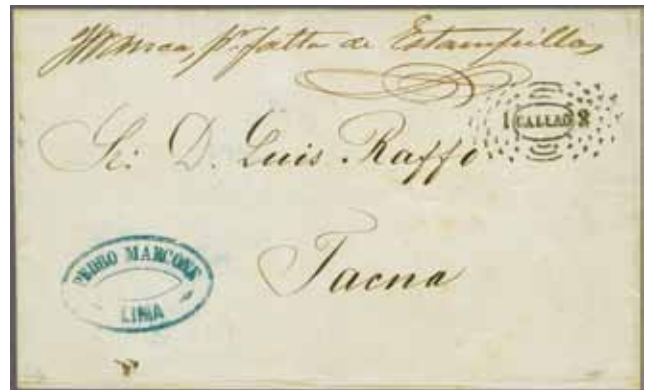 Franca, pr. falta de Estampillas
1 CALLAO 2
Sr. D. Luis Raffo
Tacna
PEDRO MARCONE
LIMA